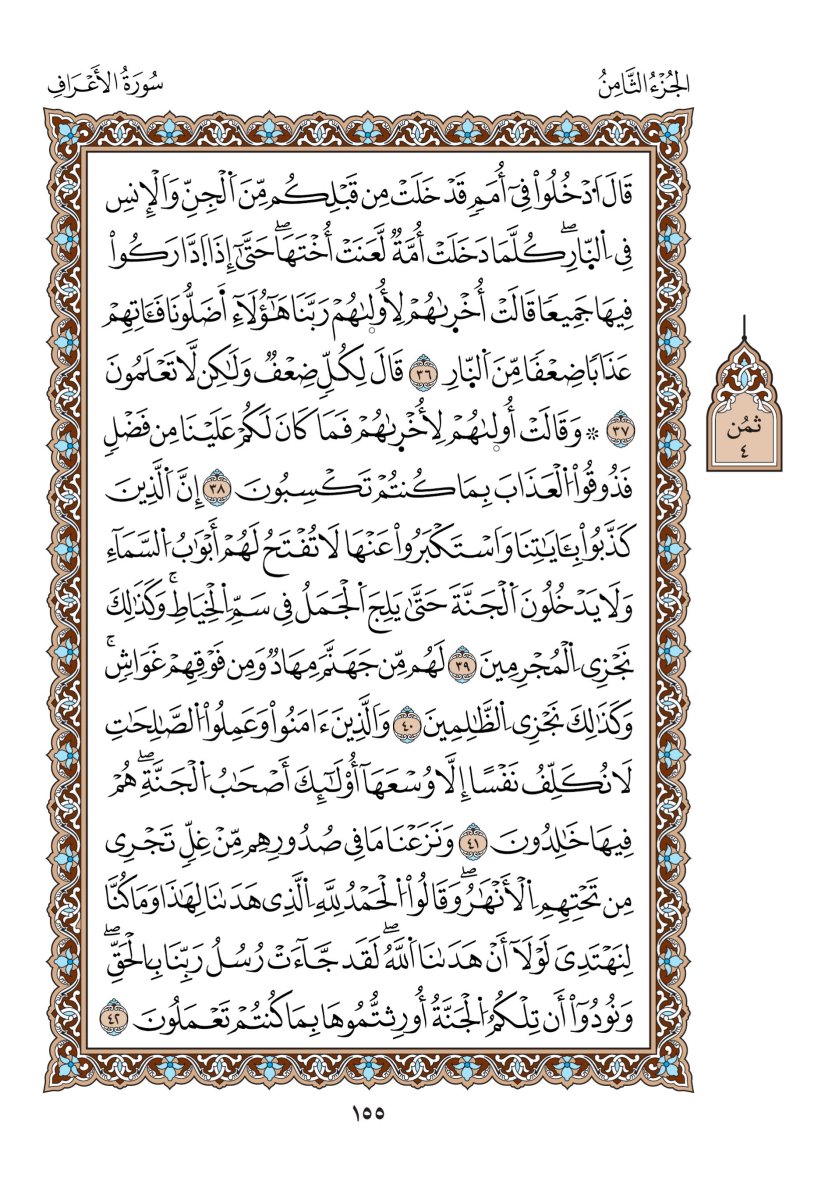 الجُزْءُ الثَّامِنُ
سُورَةُ الأَعْرَافِ
قَالَ اَ۟دْخُلُواْ فِےٓ أُمَمٖ قَدْ خَلَتْ مِن قَبْلِكُم مِّنَ اَ۬لْجِنِّ وَالْإِنسِ
فِے اِ۬لنّ۪ارِۖ كُلَّمَا دَخَلَتْ أُمَّةٞ لَّعَنَتْ أُخْتَهَاۖ حَتَّىٰٓ إِذَا اَ۪دَّارَكُواْ
فِيهَا جَمِيعٗا قَالَتْ أُخْر۪ىٰهُمْ لِأُول۪ىٰهُمْ رَبَّنَا هَٰٓؤُلَآءِ اَضَلُّونَا فَـَٔاتِهِمْ
عَذَابٗا ضِعْفٗا مِّنَ اَ۬لنّ۪ارِ ٣٦ قَالَ لِكُلّٖ ضِعْفٞ وَلَٰكِن لَّا تَعْلَمُونَ
٣٧ ۞ وَقَالَتْ أُول۪ىٰهُمْ لِأُخْر۪ىٰهُمْ فَمَا كَانَ لَكُمْ عَلَيْنَا مِن فَضْلٖ
فَذُوقُواْ اُ۬لْعَذَابَ بِمَا كُنتُمْ تَكْسِبُونَ ٣٨ إِنَّ اَ۬لَّذِينَ
كَذَّبُواْ بِـَٔايَٰتِنَا وَاسْتَكْبَرُواْ عَنْهَا لَا تُفْتَحُ لَهُمْ أَبْوَٰبُ اُ۬لسَّمَآءِ
وَلَا يَدْخُلُونَ اَ۬لْجَنَّةَ حَتَّىٰ يَلِجَ اَ۬لْجَمَلُ فِے سَمِّ اِ۬لْخِيَاطِۚ وَكَذَٰلِكَ
نَجْزِے اِ۬لْمُجْرِمِينَ ٣٩ لَهُم مِّن جَهَنَّمَ مِهَادٞ وَمِن فَوْقِهِمْ غَوَاشٖۚ
وَكَذَٰلِكَ نَجْزِے اِ۬لظَّٰلِمِينَ ٤٠ وَالَّذِينَ ءَامَنُواْ وَعَمِلُواْ اُ۬لصَّٰلِحَٰتِ
لَا نُكَلِّفُ نَفْسًا إِلَّا وُسْعَهَآ أُوْلَٰٓئِكَ أَصْحَٰبُ اُ۬لْجَنَّةِۖ هُمْ
فِيهَا خَٰلِدُونَ ٤١ وَنَزَعْنَا مَا فِے صُدُورِهِم مِّنْ غِلّٖ تَجْرِے
مِن تَحْتِهِمِ اِ۬لْأَنْهَٰرُۖ وَقَالُواْ اُ۬لْحَمْدُ لِلهِ اِ۬لذِے هَدَىٰنَا لِهَٰذَا وَمَا كُنَّا
لِنَهْتَدِيَ لَوْلَآ أَنْ هَدَىٰنَا اَ۬للَّهُۖ لَقَد جَّآءَتْ رُسُلُ رَبِّنَا بِالْحَقِّۖ
وَنُودُوٓاْ أَن تِلْكُمُ اُ۬لْجَنَّةُ أُورِثتُّمُوهَا بِمَا كُنتُمْ تَعْمَلُونَ ٤٢
ثُمُن
٤
١٥٥